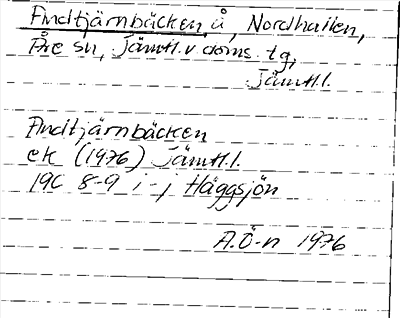 Andtjärnbäcken å, Nordhallen,
Åre sn, Jämtl. v. doms. tg,
Jämtl.
Andtjärnbäcken
ek (1976) Jämtl.
19C 8-9 i-j Häggsjön
A.Ö-n 1976